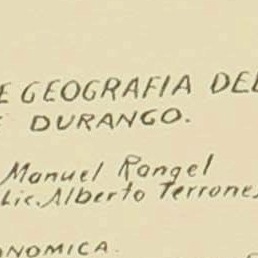 E GEOGRAFIA DEL
E DURANGO.
Manuel Rangel
Lic. Alberto Terrones
ONOMICA.